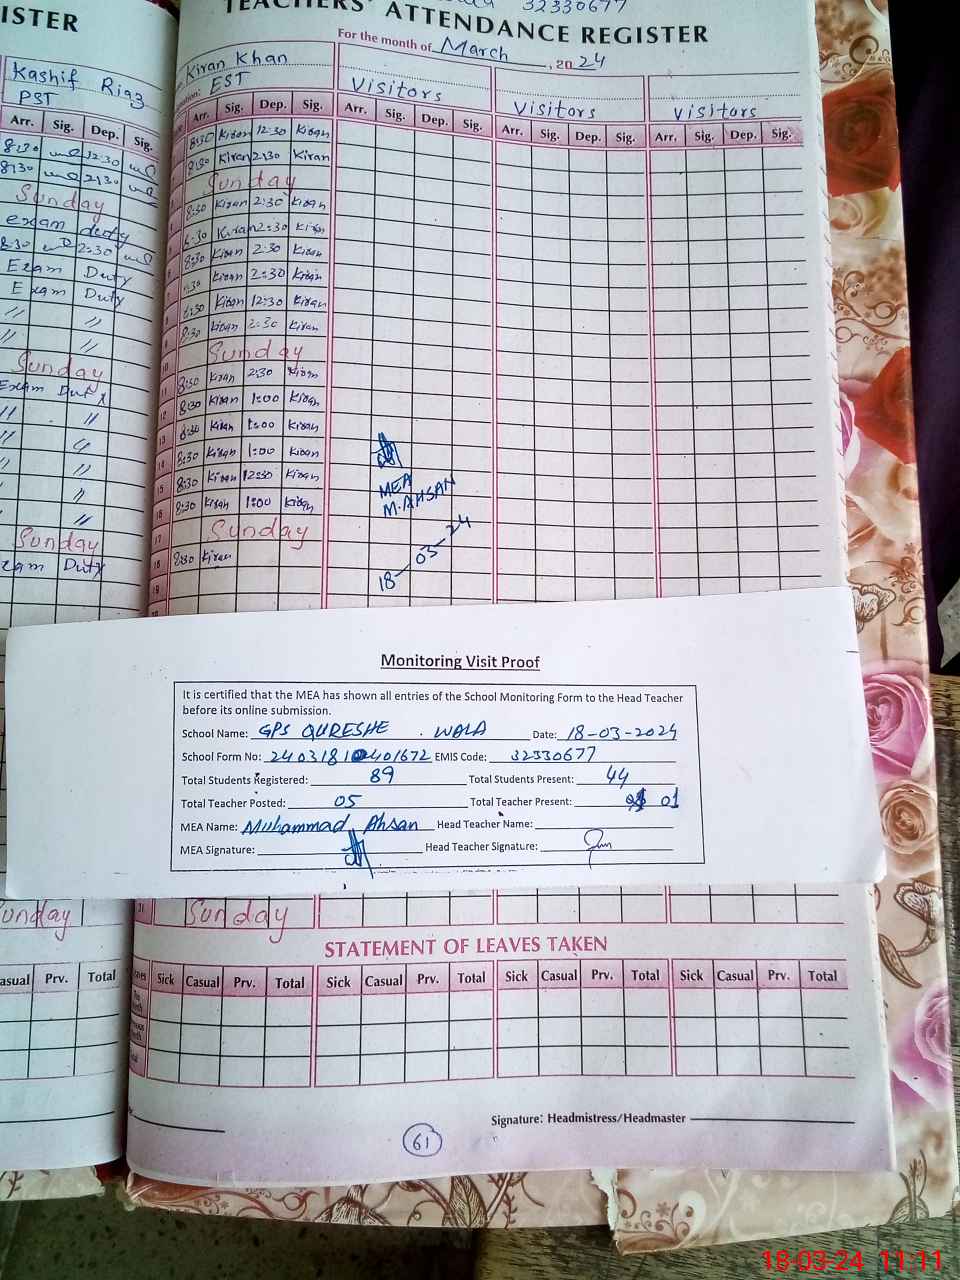 32330677
TEACHERS' ATTENDANCE REGISTER
For the month of March, 2024
ISTER
Kashif Riaz
PST
Arr. Sig. Dep. Sig.
8:30 12:30
8:30 2:30
Sunday
exam duty
8:30 2:30
Exam Duty
Exam Duty
〃 〃
〃 〃
Sunday
Exam Duty
〃 〃
〃 〃
〃
〃
〃
Sunday
Exam Duty
Kiran Khan
EST
Visitors
Visitors
Visitors
Arr. Sig. Dep. Sig. Arr. Sig. Dep. Sig. Arr. Sig. Dep. Sig. Arr. Sig. Dep. Sig.
8:30 Kiran 12:30 Kiran
8:30 Kiran 2:30 Kiran
Sunday
8:30 Kiran 2:30 Kiran
8:30 Kiran 2:30 Kiran
8:30 Kiran 2:30 Kiran
8:30 Kiran 2:30 Kiran
8:30 Kiran 12:30 Kiran
8:30 Kiran 2:30 Kiran
Sunday
11 8:30 Kiran 2:30 Kiran
12 8:30 Kiran 1:00 Kiran
13 8:30 Kiran 1:00 Kiran
14 8:30 Kiran 1:00 Kiran
15 8:30 Kiran 12:30 Kiran
16 8:30 Kiran 1:00 Kiran
17 Sunday
18 8:30 Kiran
19
MEA
M.AHSAN
18-03-24
Monitoring Visit Proof
It is certified that the MEA has shown all entries of the School Monitoring Form to the Head Teacher
before its online submission.
School Name: GPS QURESHE . WALA Date: 18-03-2024
School Form No: 24031810401672 EMIS Code: 32330677
Total Students Registered: 89 Total Students Present: 44
Total Teacher Posted: 05 Total Teacher Present: 01
MEA Name: Muhammad Ahsan Head Teacher Name:
MEA Signature: Head Teacher Signature:
Sunday
31 Sunday
STATEMENT OF LEAVES TAKEN
Casual Prv. Total
Sick Casual Prv. Total Sick Casual Prv. Total Sick Casual Prv. Total Sick Casual Prv. Total
Signature: Headmistress/Headmaster
61
18-03-24 11:11